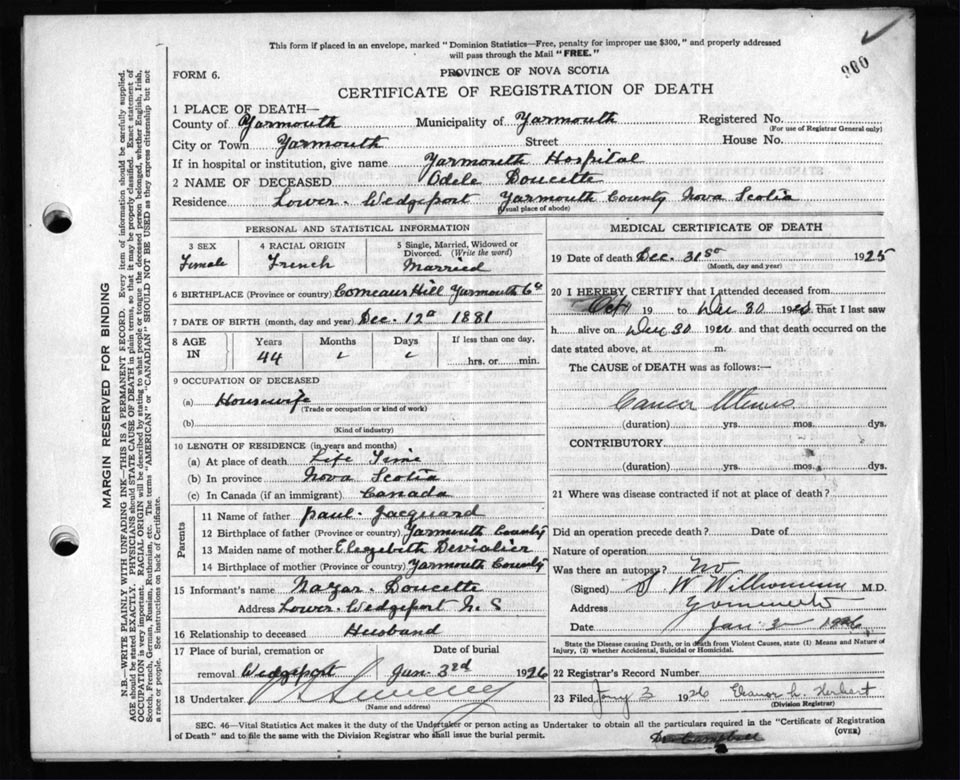 This form if placed in an envelope, marked "Dominion Statistics—Free, penalty for improper use $300," and properly addressed
will pass through the Mail "FREE."
FORM 6.
PROVINCE OF NOVA SCOTIA
CERTIFICATE OF REGISTRATION OF DEATH
1 PLACE OF DEATH—
County of Yarmouth Municipality of Yarmouth Registered No.
(For use of Registrar General only)
City or Town Yarmouth Street House No.
If in hospital or institution, give name Yarmouth Hospital
2 NAME OF DECEASED Odele Doucette
Residence Lower Wedgeport Yarmouth County Nova Scotia
(Usual place of abode)
PERSONAL AND STATISTICAL INFORMATION
3 SEX 4 RACIAL ORIGIN 5 Single, Married, Widowed or
Divorced. (Write the word)
Female French Married
6 BIRTHPLACE (Province or country) Comeaux Hill Yarmouth Co
7 DATE OF BIRTH (month, day and year) Dec. 12 1881
8 AGE IN Years Months Days If less than one day,
44
hrs. or min.
9 OCCUPATION OF DECEASED
(a) Housewife
(Trade or occupation or kind of work)
(b)
(Kind of industry)
10 LENGTH OF RESIDENCE (in years and months)
(a) At place of death Life Time
(b) In province Nova Scotia
(c) In Canada (if an immigrant) Canada
Parents
11 Name of father Paul Jacquard
12 Birthplace of father (Province or country) Yarmouth County
13 Maiden name of mother
14 Birthplace of mother (Province or country) Yarmouth County
15 Informant's name Nazar Doucette
Address Lower Wedgeport N. S
16 Relationship to deceased Husband
17 Place of burial, cremation or Date of burial
removal Wedgeport Jan. 3rd 1926
18 Undertaker
(Name and address)
MEDICAL CERTIFICATE OF DEATH
19 Date of death Dec. 31st 1925
(Month, day and year)
20 I HEREBY CERTIFY that I attended deceased from
19 to Dec 30 19 that I last saw
h alive on Dec 30 19 and that death occurred on the
date stated above, at m.
The CAUSE of DEATH was as follows:—
Cancer Uterus
(duration) yrs. mos. dys.
CONTRIBUTORY
(duration) yrs. mos. dys.
21 Where was disease contracted if not at place of death?
Did an operation precede death? Date of
Nature of operation
Was there an autopsy? No
(Signed) M.D.
Address
Date Jan 2 1926
State the Disease causing Death, or in death from Violent Causes, state (1) Means and Nature of
Injury, (2) whether Accidental, Suicidal or Homicidal.
22 Registrar's Record Number
23 Filed Jany 3 1926 Eleanor L. Herbert
(Division Registrar)
SEC. 46—Vital Statistics Act makes it the duty of the Undertaker or person acting as Undertaker to obtain all the particulars required in the "Certificate of Registration
of Death" and to file the same with the Division Registrar who shall issue the burial permit.
(OVER)
MARGIN RESERVED FOR BINDING
N.B.—WRITE PLAINLY WITH UNFADING INK—THIS IS A PERMANENT RECORD. Every item of information should be carefully supplied.
AGE should be stated EXACTLY. PHYSICIANS should STATE CAUSE OF DEATH in plain terms, so that it may be properly classified. Exact statement of
OCCUPATION is very important. RACIAL ORIGIN will be described by stating to what people or tongue the deceased person belonged, whether English, Irish,
Scotch, French, German, Russian, Ruthenian, etc. The terms "AMERICAN" or "CANADIAN" SHOULD NOT BE USED as they express citizenship but not
a race or people. See instructions on back of Certificate.